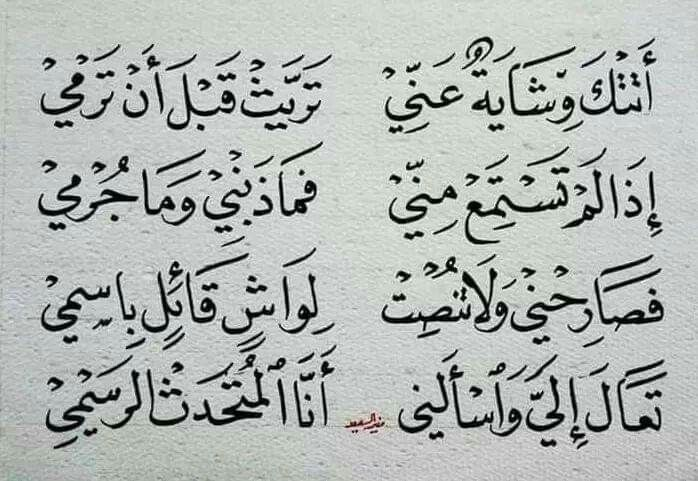 أَتَتْكَ وِشَايَةٌ عَنِّيْ تَرَيَّثْ قَبْلَ أَنْ تَرْمِيْ
إِذَا لَمْ تَسْتَمِعْ مِنِّيْ فَمَا ذَنْبِيْ وَمَا جُرْمِيْ
فَصَارِحْنِيْ وَلَا تُنْصِتْ لِوَاشٍ قَائِلٍ بِاسْمِيْ
تَعَالَ إِلَيَّ وَاسْأَلْنِي أَنَا الْمُتَحَدِّثُ الرَسْمِيْ